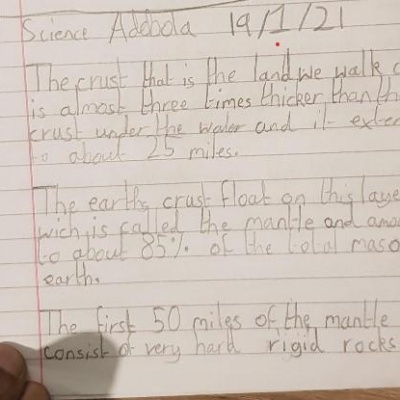 Science Adebola 19/1/21
The crust that is the land we walk
is almost three times thicker than
crust under the water and it
to about 25 miles.
The earths crust float on this
wich is called the mantle and
to about 85% of the total
earth.
The first 50 miles of the mantle
consist of very hard rigid rocks